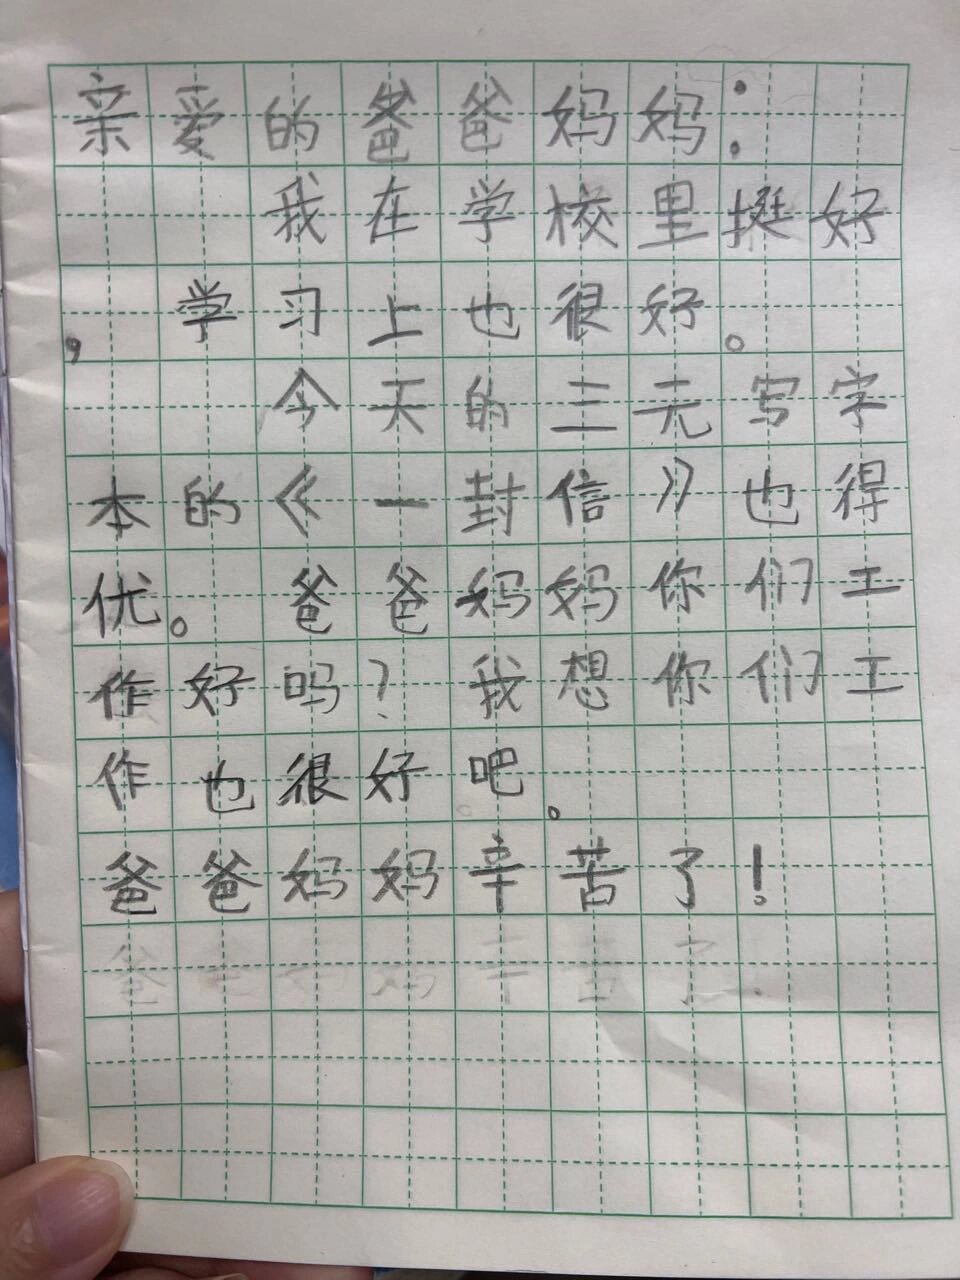 亲爱的爸爸妈妈：
我在学校里挺好
，学习上也很好。
今天的三元写字
本的《一封信》也得
优。爸爸妈妈你们工
作好吗？我想你们工
作也很好吧。
爸爸妈妈辛苦了！
爸爸妈妈辛苦了！